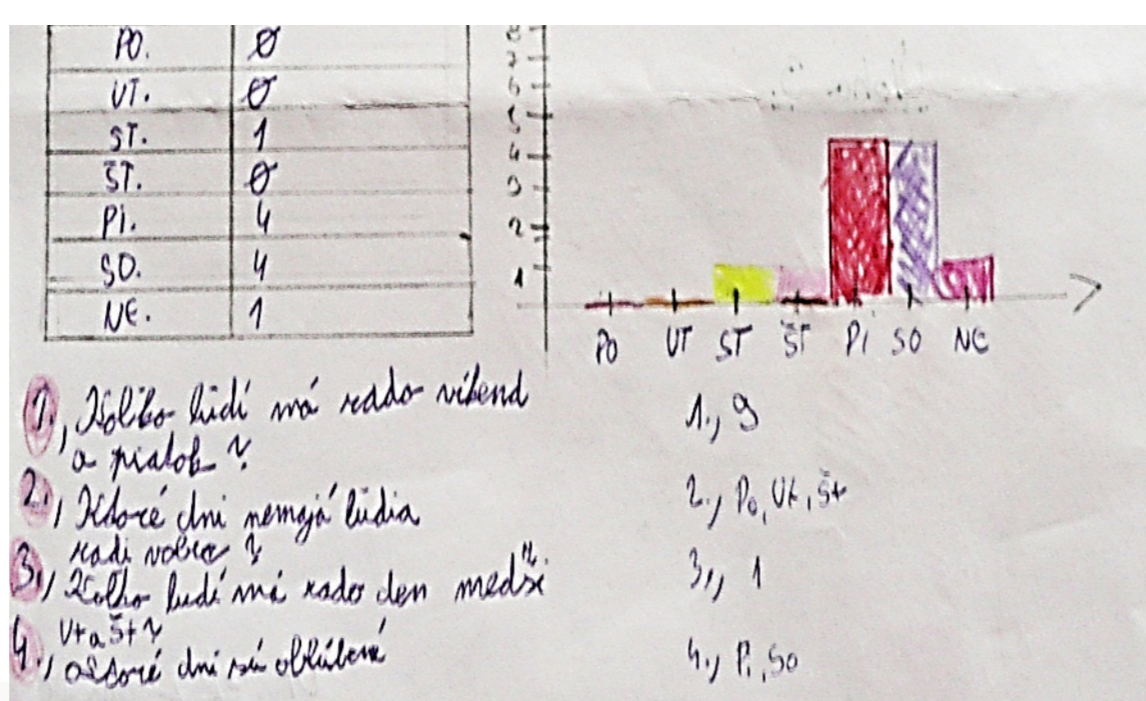 PO. 0
UT. 0
ST. 1
ŠT. 0
PI. 4
SO. 4
NE. 1
8
7
6
5
4
3
2
1
PO UT ST ŠT PI SO NE
1., Kolko ludí má rado víkend
a piatok?
2., Ktoré dni nemajá ludia
radi vobec?
3., Kolko ludí má rado den medzi
Ut a Št?
4., Ktoré dni sú oblúbené
1., 9
2., Po, Ut, Št
3., 1
4., Pi, So